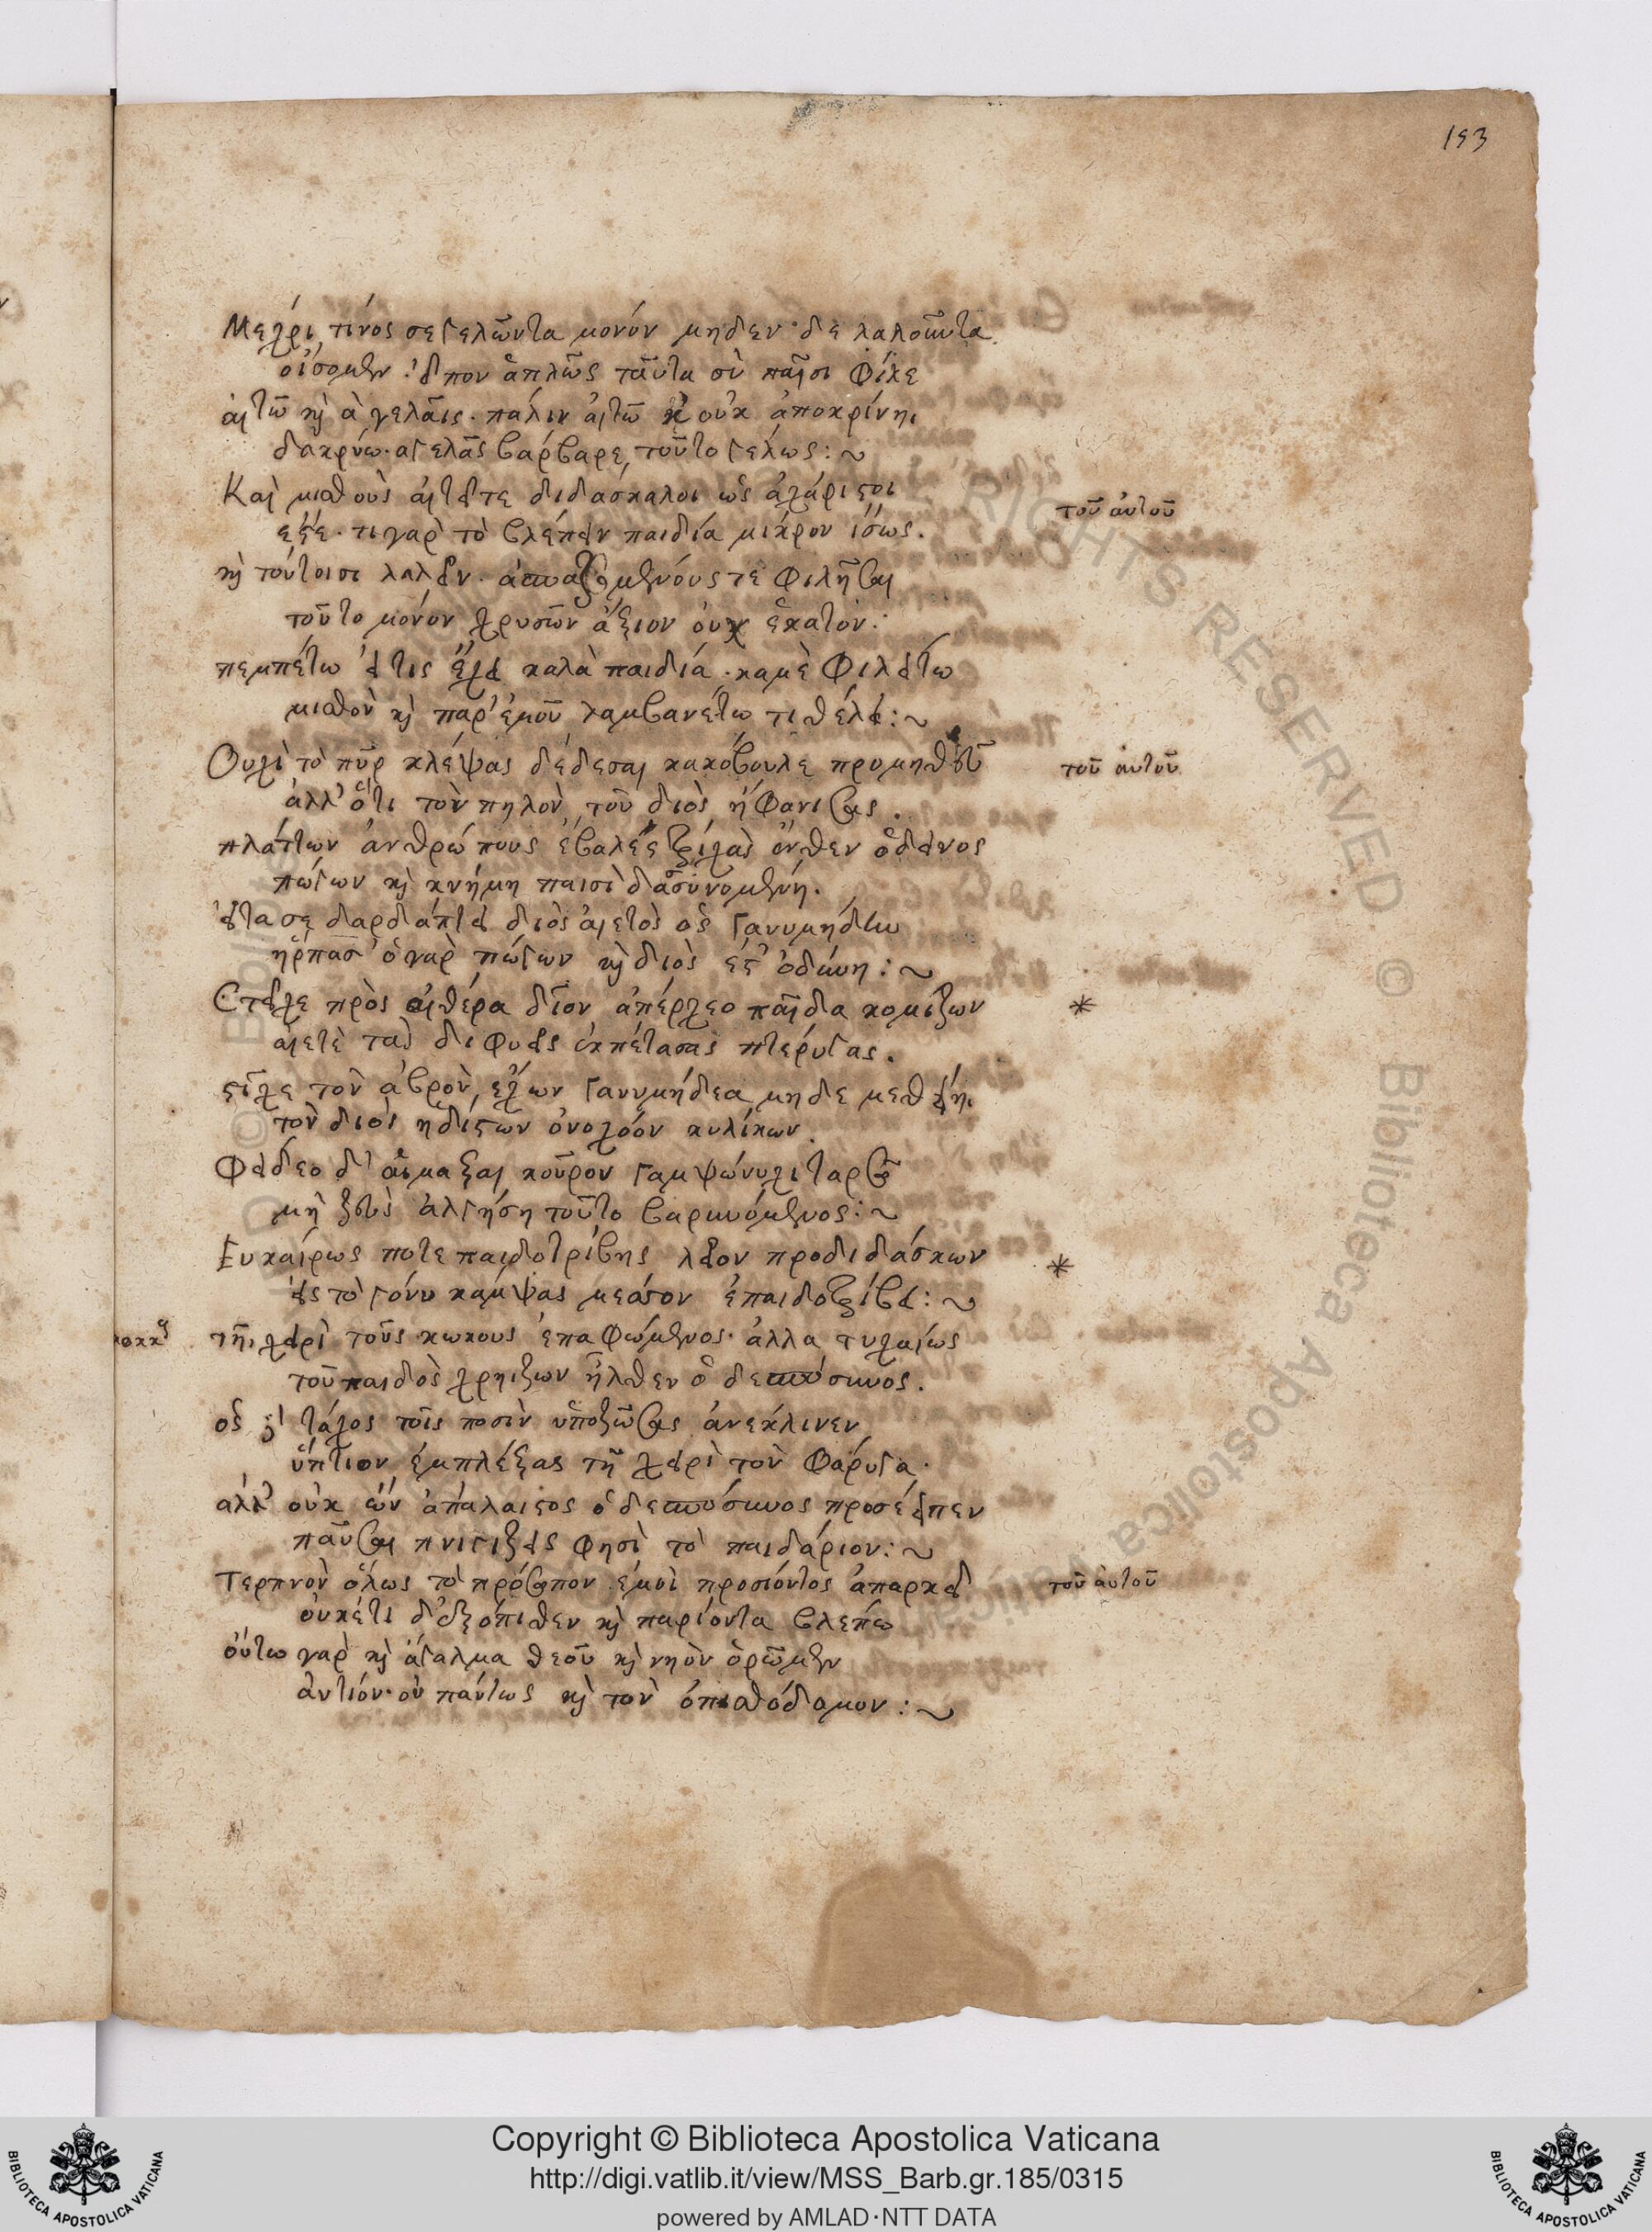 153
Μεχρι τίνος σε γελῶντα μονόν μηδεν· δε λαλοῦντα
οἴσομεν· εἶπον ἁπλῶς ταῦτα σὺ πᾶσι φίλε
αἰτῶ κỳ ἀ γελᾶις· πάλιν αἰτῶ κ οὐκ ἀποκρίνηι
δακρύω· α γελᾶς βάρβαρε, τοῦτο γελως:~
Καὶ μισθοὺς αἰτεῖτε διδάσκαλοι ὡς ἀχάριστοι
ἐστέ· τι γαρ τὸ βλέπειν παιδία μικρον ἴσως.
τοῦ αὐτοῦ
κỳ τούτοισι λαλεῖν· ἀσπαζομενους τε φιλῆσαι
τοῦτο μόνον χρυσῶν ἄξιον οὐχ ἑκατόν:
πεμπέτω εἴ τις ἔχει καλὰ παιδία· καμὲ φιλείτω
μισθὸν κỳ παρ' ἐμοῦ λαμβανέτω τι θέλει:~
Ουχὶ τὸ πῦρ κλέψας δέδεσαι κακόβουλε προμηθεῦ
τοῦ αὐτοῦ
ἀλλ' ὅτι τὸν πηλὸν τοῦ διὸς ἠφανισας.
πλάττων ἀνθρώπους ἔβαλές τρίχας ἔνθεν ὁ δεινος
πώγων κỳ κνήμη παισὶ δασυνομένη.
εἶτα σε δαρδάπτει διὸς αἰετὸς ὃς γανυμήδην
ἥρπασ' ὁ γαρ πώγων κỳ διὸς ἐστ' ὀδύνη:~
Στεῖχε πρὸς αἰθέρα δῖον ἀπέρχεο παῖδα κομίζων
*
αἰετὲ τας διφυεῖς ἐκπέτασας πτέρυγας.
στεῖχε τὸν ἁβρὸν ἔχων γανυμήδεα μηδε μεθείηι
τὸν διὸς ἡδίστων οἰνοχόον κυλίκων.
φείδεο δ' αἱμαξαι κοῦρον γαμψώνυχι ταρσῶ
μὴ ζεὺς ἀλγήση τοῦτο βαρυνόμενος:~
Ευκαίρως ποτε παιδοτρίβης λεῖον προδιδάσκων
*
εἰς τὸ γόνυ κάμψας μεσσον ἐπαιδοτρίβει:~
τῆι χειρὶ τοὺς κωκους ἐπαφώμενος· ἀλλα τυχαίως
τοῦ παιδὸς χρηιζων ἦλθεν ὁ δεσπόσυνος.
ὃς τάχος τοῖς ποσὶν ὑποζώσας ἀνεκλινεν
ὕπτιον ἐμπλέξας τῇ χειρὶ τὸν φάρυγα.
αλλ' οὐκ ὢν ἀπάλαιστος ὁ δεσπόσυνος προσέειπεν
παῦσαι πνιγιζεις φησὶ τὸ παιδάριον:~
Τερπνὸν ὅλως τὸ πρόσωπον ἐμοὶ προσιόντος ἀπαρκεῖ
τοῦ αὐτοῦ
οὐκέτι δ' ἐξόπιθεν κỳ παριόντα βλέπω
οὕτω γαρ κỳ ἄγαλμα θεοῦ κỳ νηὸν ὁρῶμεν
ἀντίον· οὐ πάντως κỳ τὸν ὀπισθόδομον:~
RIGHTS RESERVED © Biblioteca Apostolica
Copyright © Biblioteca Apostolica Vaticana
http://digi.vatlib.it/view/MSS_Barb.gr.185/0315
powered by AMLAD·NTT DATA
BIBLIOTECA APOSTOLICA VATICANA
BIBLIOTECA APOSTOLICA VATICANA